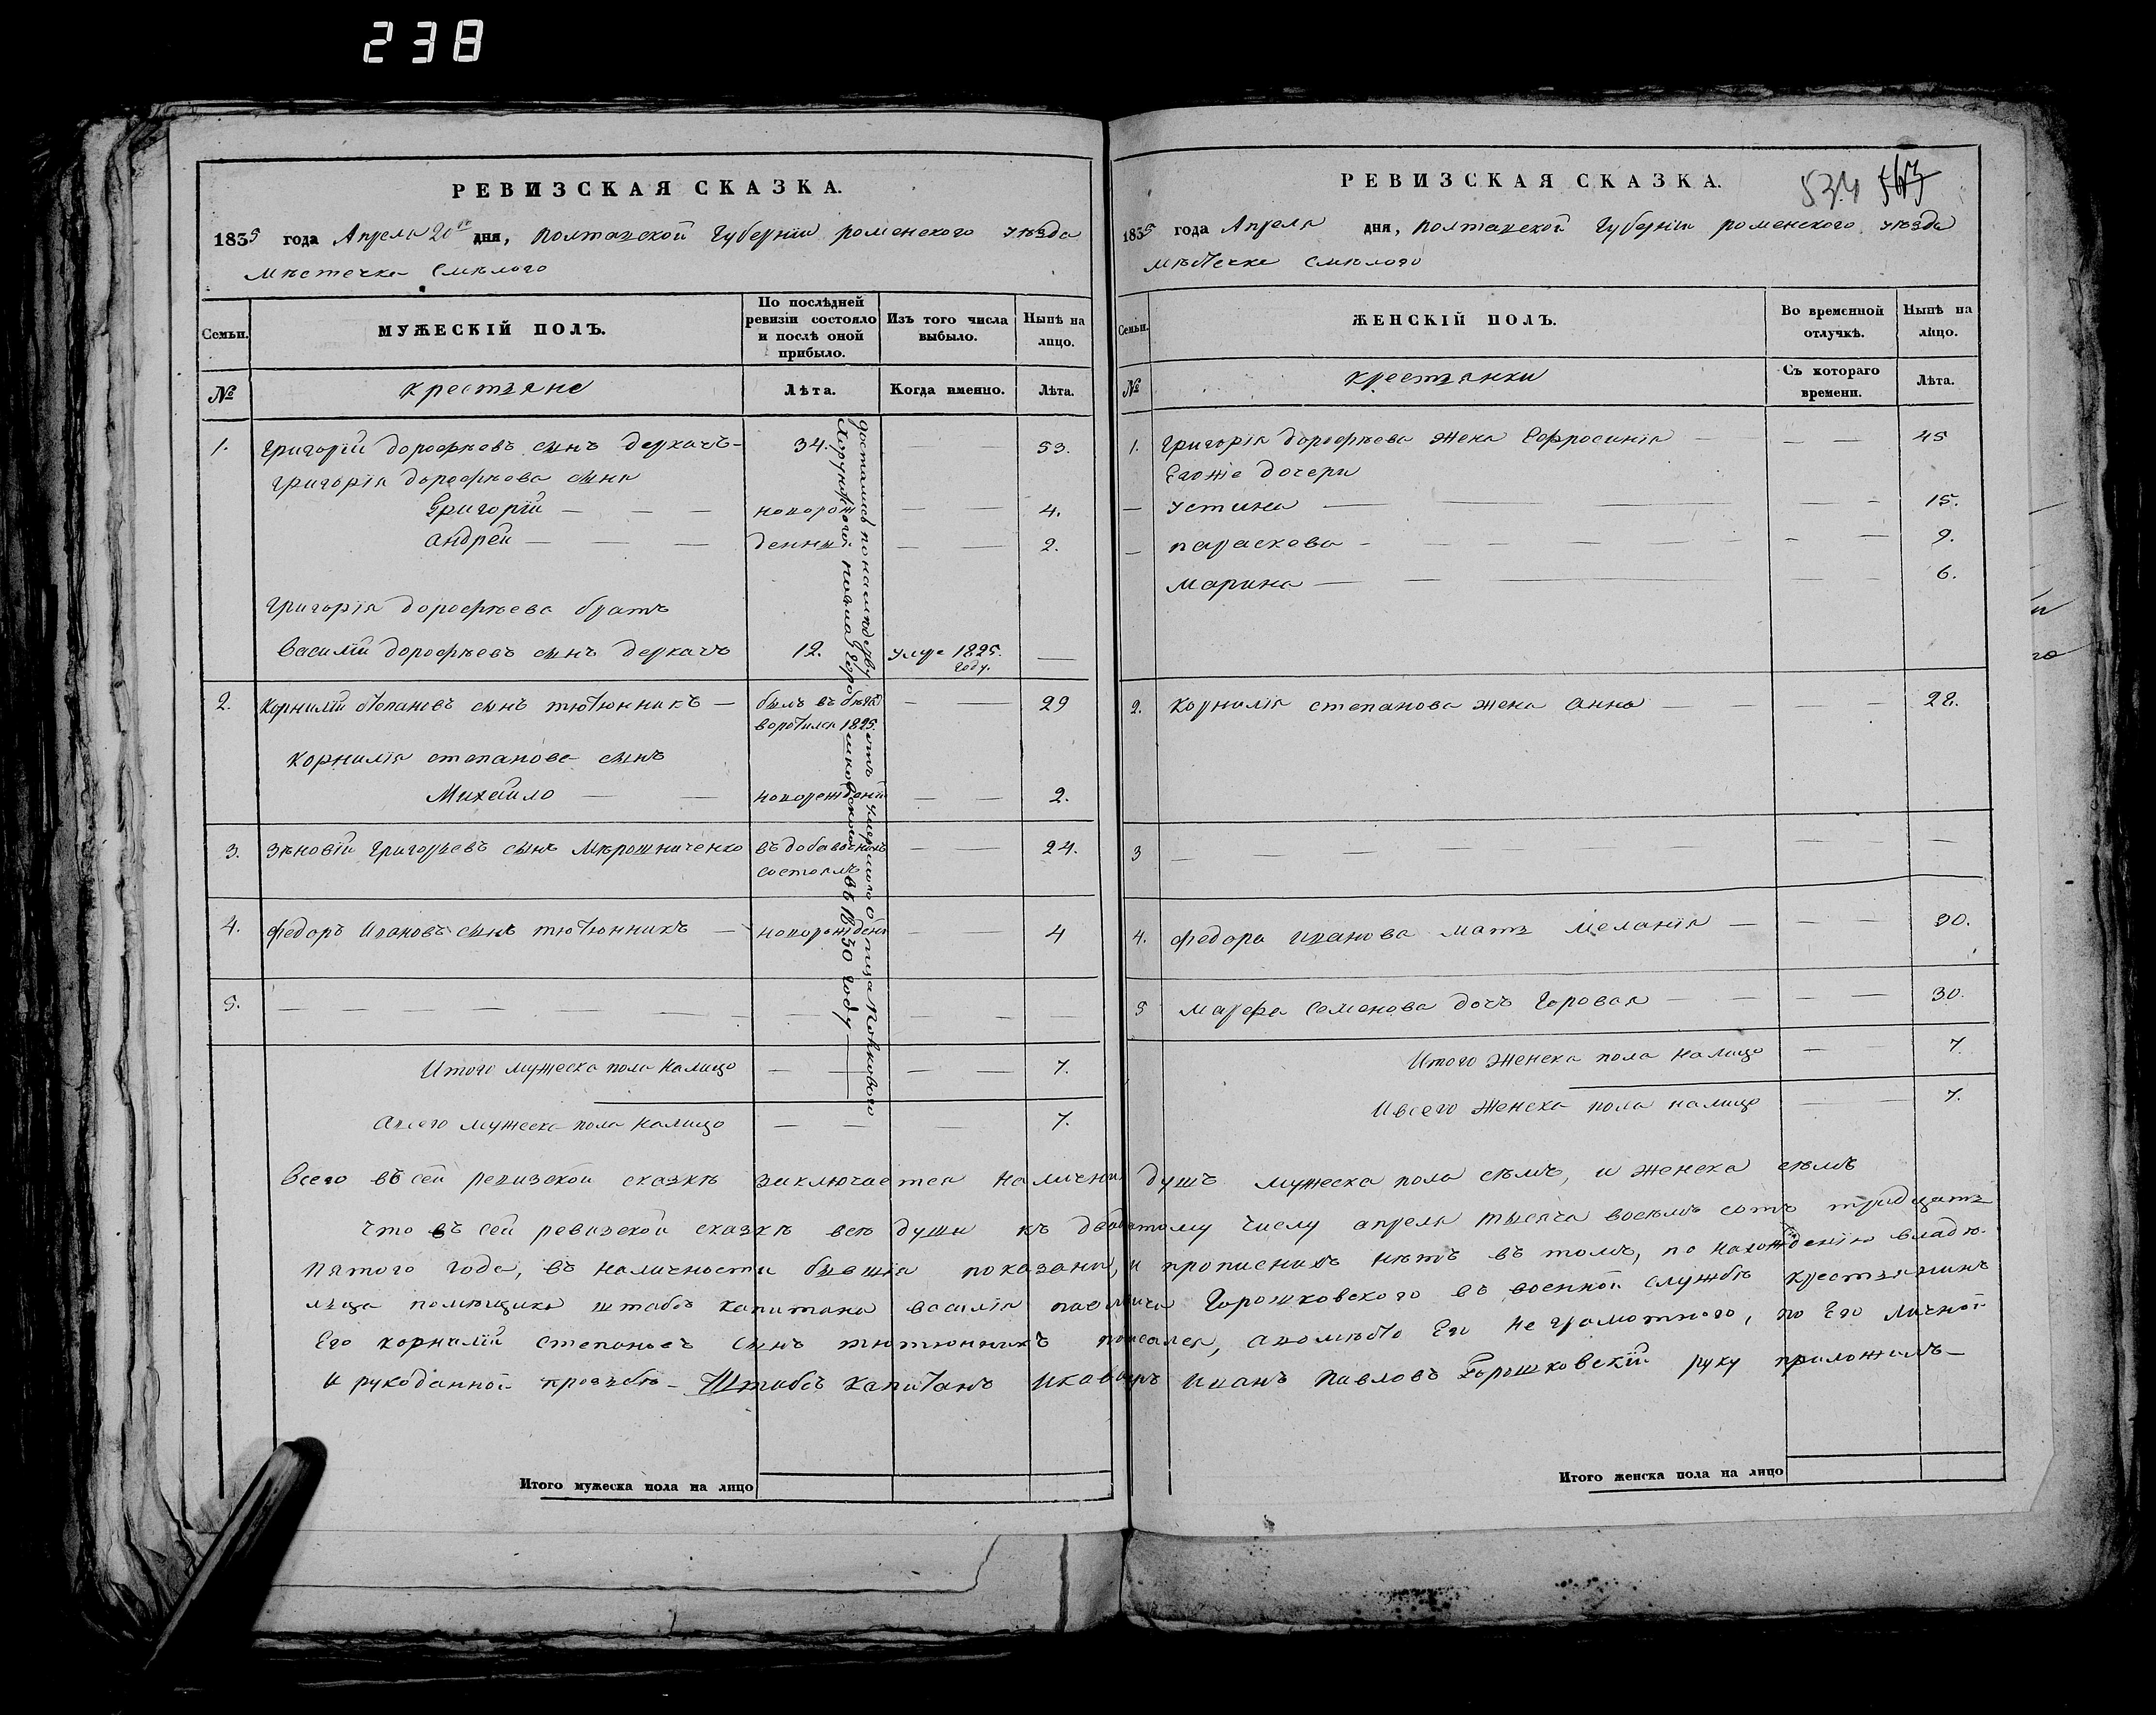 238
РЕВИЗСКАЯ СКАЗКА.
1835 года Апреля 20го дня, Полтавской Губернии роменского уѣзда
мѣстечка Смѣлого
Семьи.
МУЖЕСКІЙ ПОЛЪ.
По послѣдней ревизіи состояло и послѣ оной прибыло.
Изъ того числа выбыло.
Нынѣ на лицо.
№
крестьяне
Лѣта.
Когда именно.
Лѣта.
1. Григорій дорофѣевъ сынъ деркачъ — 34. — — 53.
Григорія дорофѣева сына
Григорій — — — новорож — — 4.
андрей — — — денны — — 2.
Григорія дорофѣева братъ
Василій дорофѣевъ сынъ деркачъ 12. умре 1825. году. —
2. Корнилій степановъ сынъ тютюнникъ — былъ въ бѣгахъ — — 29
воротился 1825.
Корнилія степанова сынъ
Михайло — — новорожденій — — 2.
3. Зѣновій Григорьевъ сынъ Мѣрошниченко въ добавочной — — 24.
состоялъ
4. Федоръ Ивановъ сынъ тютюнникъ — новорожденъ — 4
5. — — — — — — — — — — —
достались по наслѣдству отъ умершого отца Полкового
Хорунжого Павла Горошковского въ 1830 году
Итого мужеска пола налицо — — — — 7.
Авсего мужеска пола налицо — — — 7.
РЕВИЗСКАЯ СКАЗКА.
534 543
1835 года Апреля дня, полтавской Губерніи роменского уѣзда
мѣстечка Смѣлого
Семьи.
ЖЕНСКІЙ ПОЛЪ.
Во временной отлучкѣ.
Нынѣ на лицо.
№
крестьянки
Съ котораго времени.
Лѣта.
1. Григорія дорофѣева жена Ефросинія — — — 45
Егожіе дочери
— Устина — — — — 15.
— параскева — — — — — — 9.
Марина — — — — 6.
2. Корнилія степанова жена анна — — — — 28.
3 — — — — — — — — —
4. Федора иванова мать Меланія — — — 30.
5 Марфа Семенова дочь Горовая — — — 30.
Итого Женска пола налицо — — 7.
Ивсего Женска пола налицо — — 7.
Всего въ сей ревизской сказкѣ заключается наличных душъ мужеска пола сѣмъ, и женска сѣмъ
Что въ сей ревизской сказкѣ всѣ души къ двадцатому числу апреля тысяча восемъ сотъ тридцать
пятого года, въ наличности бывшіа показаны, и прописнихъ нѣтъ въ томъ, по нахожденію владѣ-
льца помѣщика штабсъ капитана василія павловича Горошковского въ военной службѣ крестьянинъ
Его корнилій степановъ сынъ тютюнникъ подписался, авомѣсто Его не грамотного, по Его личной
и рукоданной прозьбѣ — Штабсъ Капитанъ Икавалеръ Иванъ Павловъ Горошковскій руку приложилъ —
Итого мужеска пола на лицо
Итого женска пола на лицо